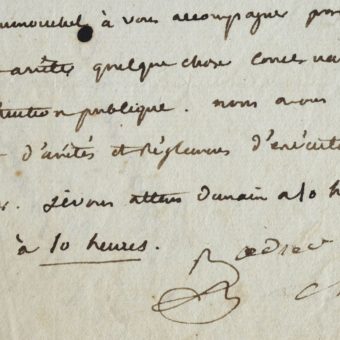 à vous accompagner pour
arrêté quelque chose concernant
publique. nous avons
d'arêtés et Réglemens d'exécution
je vous attens demain a 10 h
à 10 heures.
Rœdier